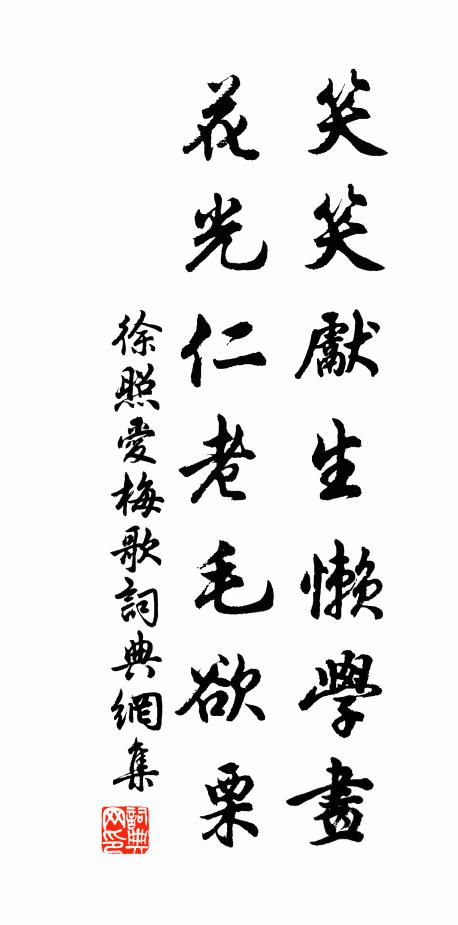 笑笑獻生懶學畫
花光仁老毛欲栗
徐照愛梅歌詞典網集
詞典網印